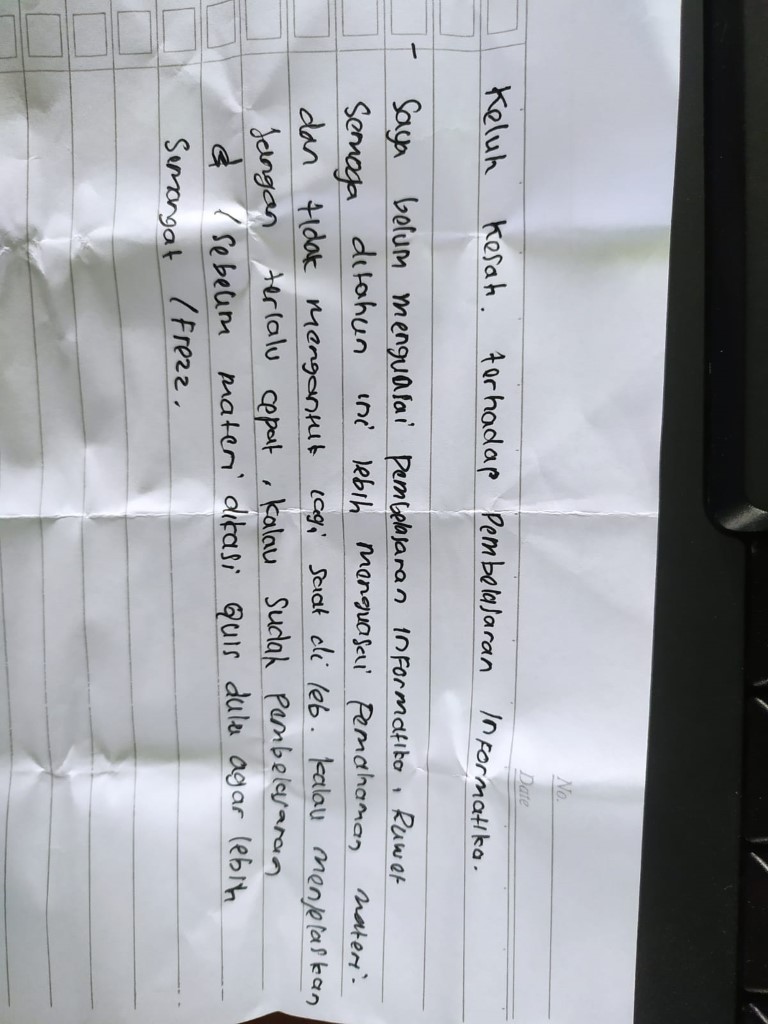 No.
Date
Keluh kesah. terhadap Pembelajaran Informatika.
- Saya belum menguasai Pembelajaran Informatika, Ruwet
Semoga ditahun ini lebih menguasai Pemahaman materi.
dan tidak mengantuk lagi saat di leb. kalau menjelaskan
Jangan terlalu cepat, kalau sudah pembelajaran
/ Sebelum materi dikasi Quis dulu agar lebih
Semangat / Frezz.